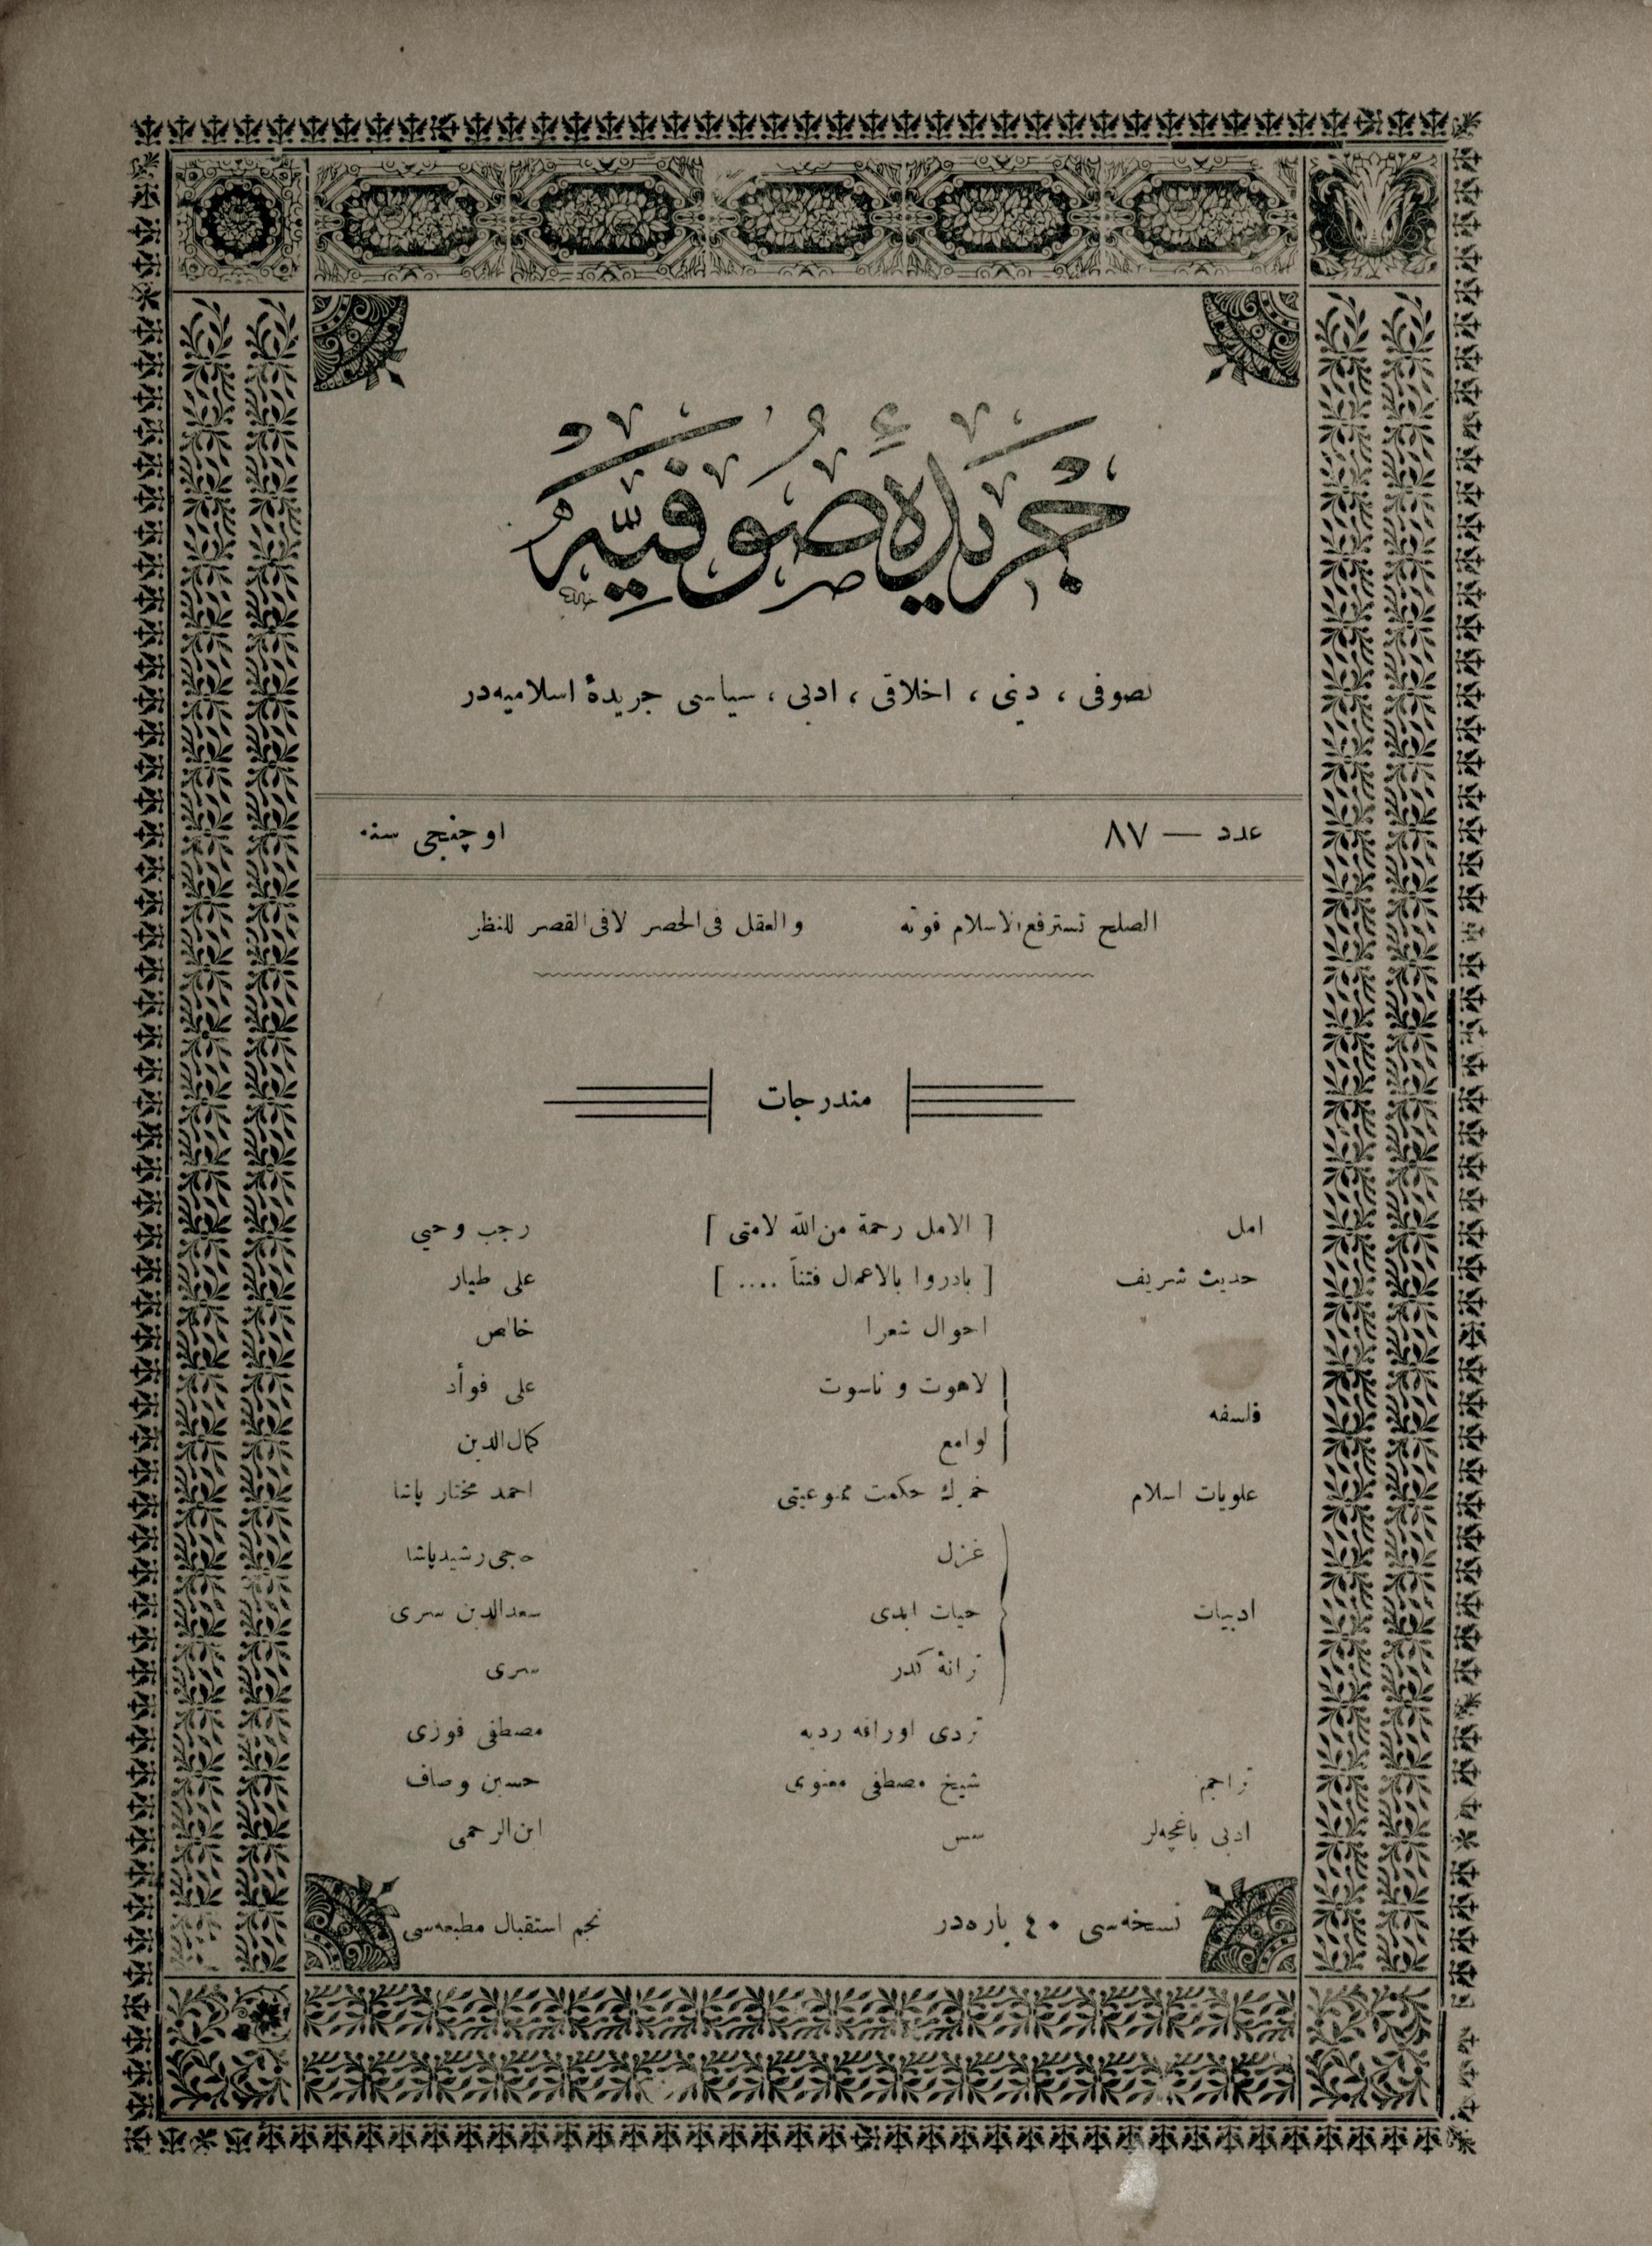 جريدۀ صوفيه
تصوفى ، دينى ، اخلاقى ، ادبى ، سياسى جريدۀ اسلاميه‌در
عدد — ٨٧ اوچنجى سنه
الصلح تسترفع الاسلام قوته والعقل فى الحصر لا فى القصر للنظر
مندرجات
امل [ الامل رحمة من الله لامتى ] رجب وحيي
حديث شريف [ بادروا بالاعمال فتناً .... ] على طيار
احوال شعرا خالص
فلسفه لاهوت و ناسوت على فوأد
لوامع كمال‌الدين
علويات اسلام خمرك حكمت ممنوعيتى احمد مختار پاشا
ادبيات غزل حجى رشيد پاشا
حيات ابدى سعدالدين سرى
ترانۀ كدر سرى
تردى اوراقه رديه مصطفى فوزى
تراجم شيخ مصطفى معنوى حسين وصاف
ادبى باغچه‌لر سس ابن‌الرحمى
نسخه‌سى ٤٠ پاره‌در نجم استقبال مطبعه‌سى